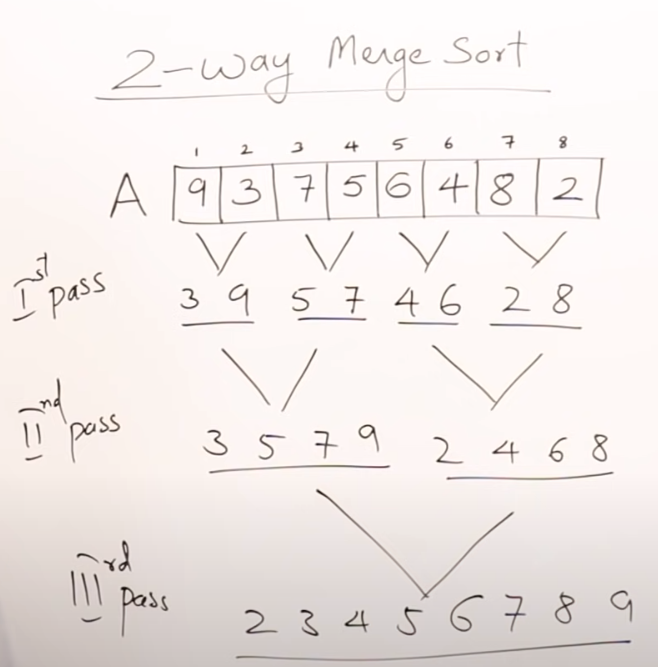 2-Way Merge Sort
1 2 3 4 5 6 7 8
A 9 3 7 5 6 4 8 2
Ist pass 3 9 5 7 4 6 2 8
IInd pass 3 5 7 9 2 4 6 8
IIIrd pass 2 3 4 5 6 7 8 9